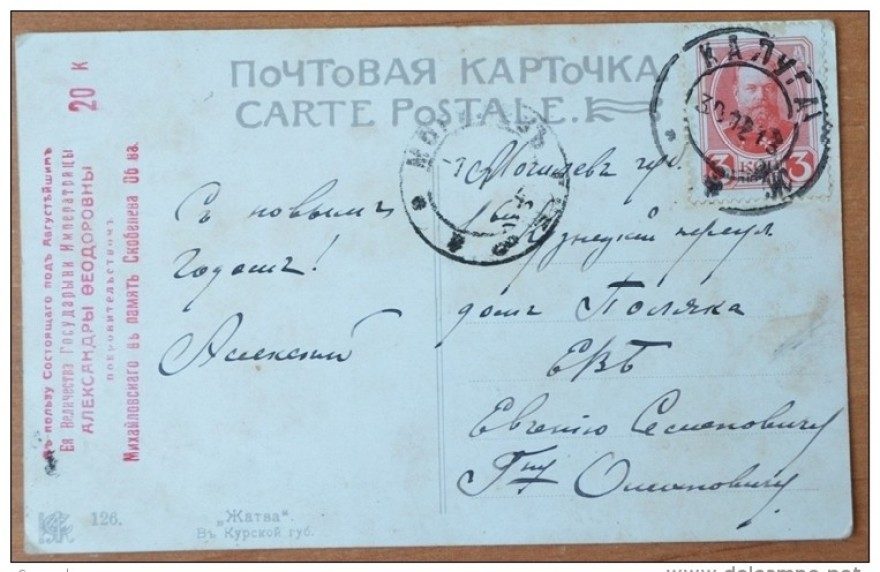 ПОЧТОВАЯ КАРТОЧКА
CARTE POSTALE.
КАЛУГА
30 12 13
3 3
Въ пользу Состоящаго подъ Августѣйшимъ
Ея Величества Государыни Императрицы
АЛЕКСАНДРЫ ѲЕОДОРОВНЫ
покровительствомъ
Михайловскаго въ память Скобелева Об ва.
20 К
Съ новымъ
Годомъ!
Алексей
Могилев губ.
Кузнецкий переул
домъ Поляка
ЕВБ
Евгенію Семеновичу
Гну
126.
„Жатва“.
Въ Курской губ.